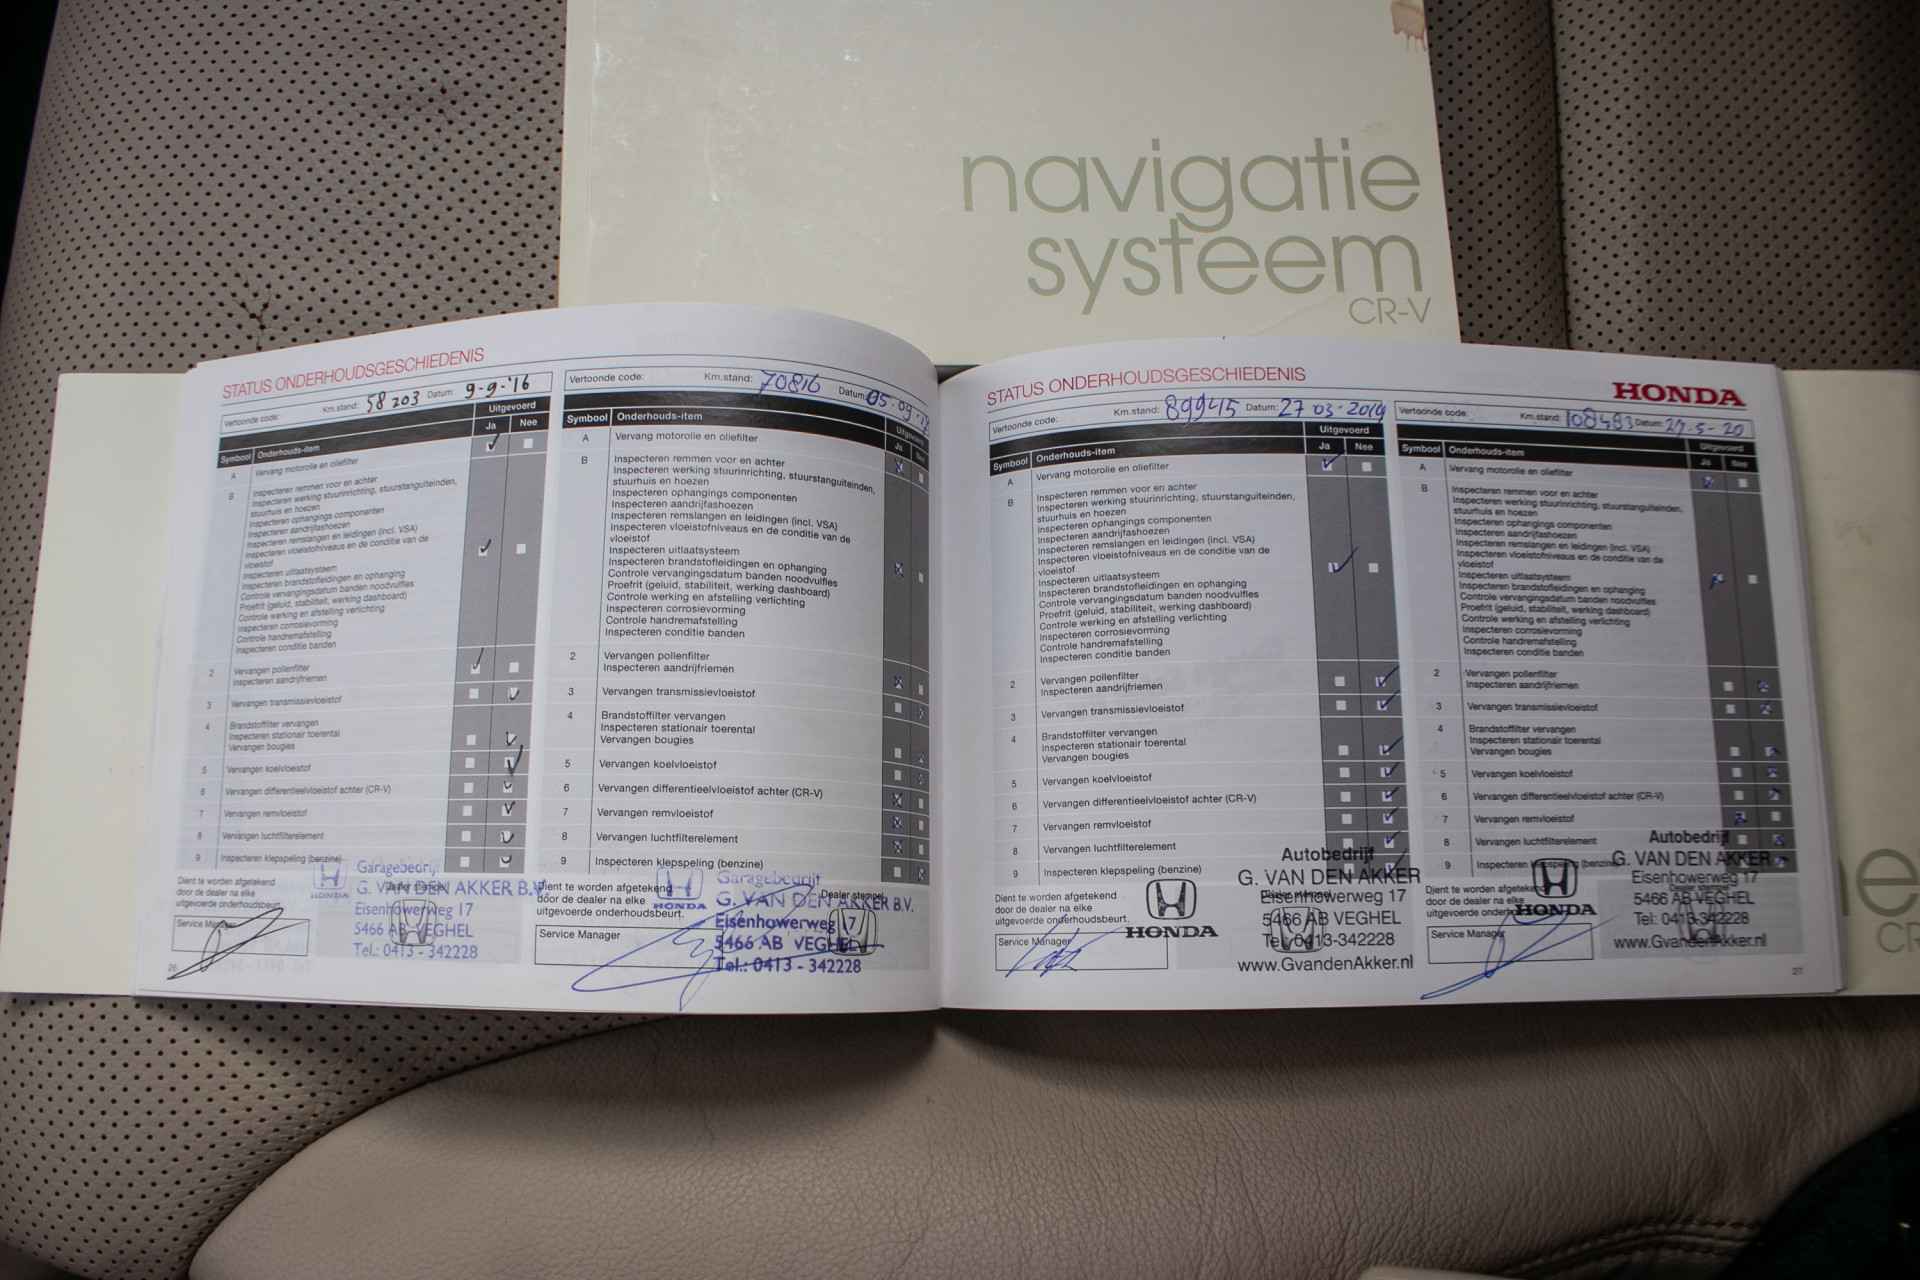 navigatie
systeem
CR-V
STATUS ONDERHOUDSGESCHIEDENIS
Vertoonde code: Km.stand: 58203 Datum: 9-9-'16
Symbool Onderhouds-item Uitgevoerd
Ja Nee
A Vervang motorolie en oliefilter
B Inspecteren remmen voor en achter
Inspecteren werking stuurinrichting, stuurstanguiteinden,
stuurhuis en hoezen
Inspecteren ophangings componenten
Inspecteren aandrijfashoezen
Inspecteren remslangen en leidingen (incl. VSA)
Inspecteren vloeistofniveaus en de conditie van de
vloeistof
Inspecteren uitlaatsysteem
Inspecteren brandstofleidingen en ophanging
Controle vervangingsdatum banden noodvulfles
Proefrit (geluid, stabiliteit, werking dashboard)
Controle werking en afstelling verlichting
Inspecteren corrosievorming
Controle handremafstelling
Inspecteren conditie banden
2 Vervangen pollenfilter
Inspecteren aandrijfriemen
3 Vervangen transmissievloeistof
4 Brandstoffilter vervangen
Inspecteren stationair toerental
Vervangen bougies
5 Vervangen koelvloeistof
6 Vervangen differentieelvloeistof achter (CR-V)
7 Vervangen remvloeistof
8 Vervangen luchtfilterelement
9 Inspecteren klepspeling (benzine)
Dient te worden afgetekend
door de dealer na elke
uitgevoerde onderhoudsbeurt.
Service Manager
Dealer stempel
HONDA
Garagebedrijf
G. VAN DEN AKKER B.V.
Eisenhowerweg 17
5466 AB VEGHEL
Tel.: 0413 - 342228
26
Vertoonde code: Km.stand: 70816 Datum: 05-09-
Symbool Onderhouds-item Uitgevoerd
Ja Nee
A Vervang motorolie en oliefilter
B Inspecteren remmen voor en achter
Inspecteren werking stuurinrichting, stuurstanguiteinden,
stuurhuis en hoezen
Inspecteren ophangings componenten
Inspecteren aandrijfashoezen
Inspecteren remslangen en leidingen (incl. VSA)
Inspecteren vloeistofniveaus en de conditie van de
vloeistof
Inspecteren uitlaatsysteem
Inspecteren brandstofleidingen en ophanging
Controle vervangingsdatum banden noodvulfles
Proefrit (geluid, stabiliteit, werking dashboard)
Controle werking en afstelling verlichting
Inspecteren corrosievorming
Controle handremafstelling
Inspecteren conditie banden
2 Vervangen pollenfilter
Inspecteren aandrijfriemen
3 Vervangen transmissievloeistof
4 Brandstoffilter vervangen
Inspecteren stationair toerental
Vervangen bougies
5 Vervangen koelvloeistof
6 Vervangen differentieelvloeistof achter (CR-V)
7 Vervangen remvloeistof
8 Vervangen luchtfilterelement
9 Inspecteren klepspeling (benzine)
Dient te worden afgetekend
door de dealer na elke
uitgevoerde onderhoudsbeurt.
Service Manager
Dealer stempel
HONDA
Garagebedrijf
G. VAN DEN AKKER B.V.
Eisenhowerweg 17
5466 AB VEGHEL
Tel.: 0413 - 342228
STATUS ONDERHOUDSGESCHIEDENIS
HONDA
Vertoonde code: Km.stand: 89945 Datum: 27 03-2019
Symbool Onderhouds-item Uitgevoerd
Ja Nee
A Vervang motorolie en oliefilter
B Inspecteren remmen voor en achter
Inspecteren werking stuurinrichting, stuurstanguiteinden,
stuurhuis en hoezen
Inspecteren ophangings componenten
Inspecteren aandrijfashoezen
Inspecteren remslangen en leidingen (incl. VSA)
Inspecteren vloeistofniveaus en de conditie van de
vloeistof
Inspecteren uitlaatsysteem
Inspecteren brandstofleidingen en ophanging
Controle vervangingsdatum banden noodvulfles
Proefrit (geluid, stabiliteit, werking dashboard)
Controle werking en afstelling verlichting
Inspecteren corrosievorming
Controle handremafstelling
Inspecteren conditie banden
2 Vervangen pollenfilter
Inspecteren aandrijfriemen
3 Vervangen transmissievloeistof
4 Brandstoffilter vervangen
Inspecteren stationair toerental
Vervangen bougies
5 Vervangen koelvloeistof
6 Vervangen differentieelvloeistof achter (CR-V)
7 Vervangen remvloeistof
8 Vervangen luchtfilterelement
9 Inspecteren klepspeling (benzine)
Dient te worden afgetekend
door de dealer na elke
uitgevoerde onderhoudsbeurt.
Service Manager
Dealer stempel
HONDA
Autobedrijf
G. VAN DEN AKKER
Eisenhowerweg 17
5466 AB VEGHEL
Tel: 0413-342228
www.GvandenAkker.nl
Vertoonde code: Km.stand: 108483 Datum: 27-5-20
Symbool Onderhouds-item Uitgevoerd
Ja Nee
A Vervang motorolie en oliefilter
B Inspecteren remmen voor en achter
Inspecteren werking stuurinrichting, stuurstanguiteinden,
stuurhuis en hoezen
Inspecteren ophangings componenten
Inspecteren aandrijfashoezen
Inspecteren remslangen en leidingen (incl. VSA)
Inspecteren vloeistofniveaus en de conditie van de
vloeistof
Inspecteren uitlaatsysteem
Inspecteren brandstofleidingen en ophanging
Controle vervangingsdatum banden noodvulfles
Proefrit (geluid, stabiliteit, werking dashboard)
Controle werking en afstelling verlichting
Inspecteren corrosievorming
Controle handremafstelling
Inspecteren conditie banden
2 Vervangen pollenfilter
Inspecteren aandrijfriemen
3 Vervangen transmissievloeistof
4 Brandstoffilter vervangen
Inspecteren stationair toerental
Vervangen bougies
5 Vervangen koelvloeistof
6 Vervangen differentieelvloeistof achter (CR-V)
7 Vervangen remvloeistof
8 Vervangen luchtfilterelement
9 Inspecteren klepspeling (benzine)
Dient te worden afgetekend
door de dealer na elke
uitgevoerde onderhoudsbeurt.
Service Manager
Dealer stempel
HONDA
Autobedrijf
G. VAN DEN AKKER
Eisenhowerweg 17
5466 AB VEGHEL
Tel: 0413-342228
www.GvandenAkker.nl
27